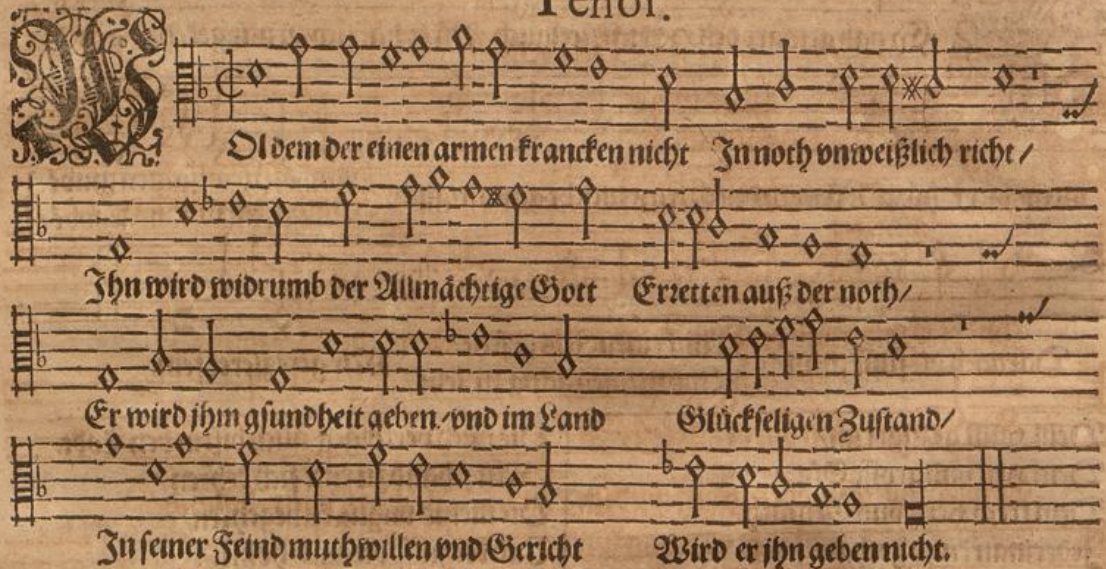 Tenor.
WOl dem der einen armen krancken nicht Jn noth vnweißlich richt /
Jhn wird widrumb der Allmächtige Gott Erretten auß der noth/
Er wird jhm gsundheit geben/ vnd im Land Glückseligen Zustand/
Jn seiner Feind muthwillen vnd Gericht Wird er jhn geben nicht.